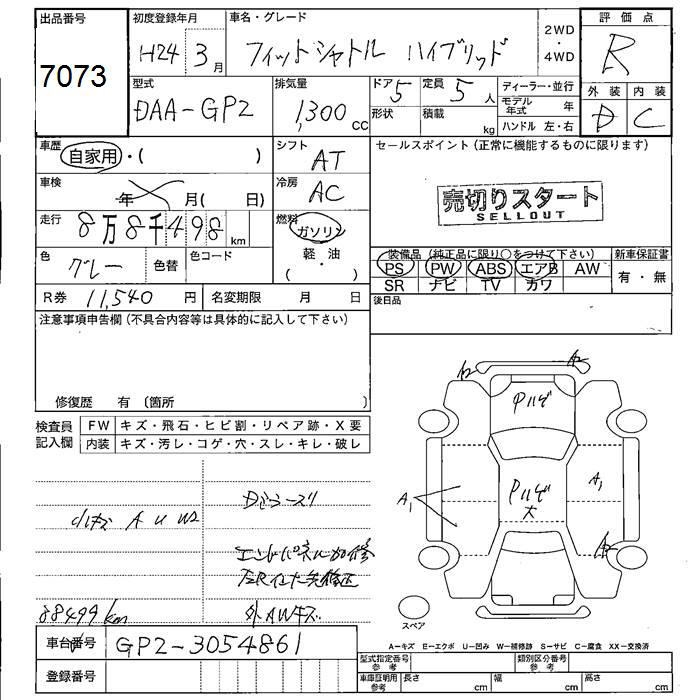 出品番号 初度登録年月 車名・グレード 2WD・4WD 評価点
7073 H24 3月 フィットシャトル ハイブリッド R
型式 排気量 ドア 5 定員 5人 ディーラー・並行 外装 内装
DAA-GP2 1,300 cc 形状 積載 kg モデル年式 年 D C
ハンドル 左・右
車歴 自家用・( ) シフト AT セールスポイント (正常に機能するものに限ります)
車検 年 月( 日) 冷房 AC 売切りスタート
SELLOUT
走行 8万8千498km 燃料 ガソリン
軽・油
( )
色 グレー 色替 色コード
装備品 (純正品に限り○をつけて下さい) 新車保証書
PS PW ABS エアB AW 有・無
SR ナビ TV カワ
R券 11,540円 名変期限 月 日 後日品
注意事項申告欄(不具合内容等は具体的に記入して下さい)
修復歴 有 〔箇所 〕
検査員記入欄 FW キズ・飛石・ヒビ割・リペア跡・X要
内装 キズ・汚レ・コゲ・穴・スレ・キレ・破レ
A2 A2
Pハゲ
A1 Pハゲ 大 A1
A2
小キズ A U W2
外AWキズ
88499km
スペア
A=キズ E=エクボ U=凹み W=補修跡 S=サビ C=腐食 XX=交換済
車台番号 GP2-3054861
型式指定番号 参考 類別区分番号 参考
登録番号 車庫証明用 参考 長さ cm 幅 cm 高さ cm